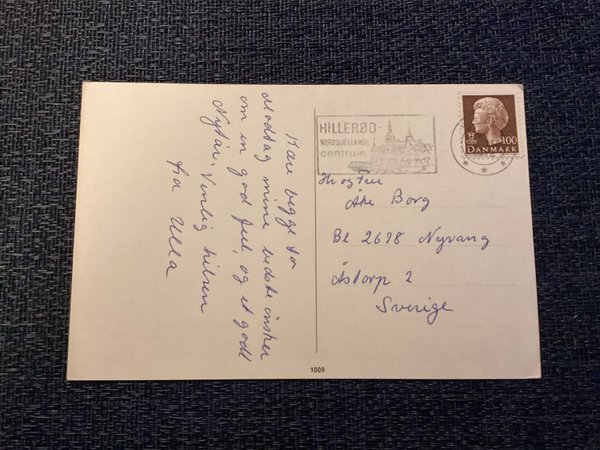 Kære begge to
Modtag mine bedste ønsker
om en god Jul, og et godt
Nytår, Venlig hilsen
fra Ulla
HILLERØD-
NORDSJÆLLANDS
centrum
100
DANMARK
Hr og fru
Åke Borg
Bl 2678 Nyvang
Åstorp 2
Sverige
1009